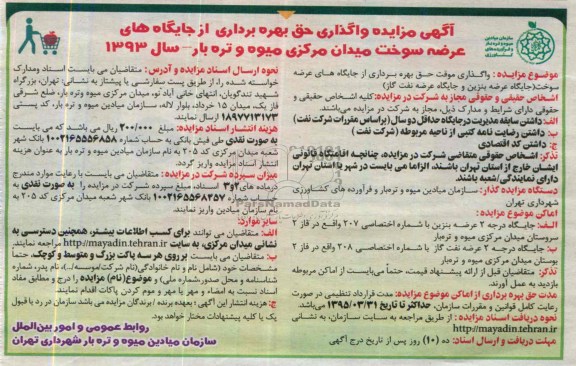 آگهی مزایده واگذاری حق بهره برداری از جایگاه های
عرضه سوخت میدان مرکزی میوه و تره بار - سال ۱۳۹۳
سازمان میادین
میوه و تره بار
موضوع مزایده : واگذاری موقت حق بهره برداری از جایگاه های عرضه
سوخت(جایگاه عرضه بنزین و جایگاه عرضه نفت گاز)
اشخاص حقیقی و حقوقی مجاز به شرکت در مزایده: کلیه اشخاص حقیقی و
حقوقی دارای شرایط و مدارک ذیل، مجاز به شرکت در مزایده می‌باشند.
الف: داشتن سابقه مدیریت درجایگاه حداقل دو سال (براساس مقررات شرکت نفت)
ب: داشتن رضایت نامه کتبی از ناحیه مربوطه (شرکت نفت )
ج: داشتن کد اقتصادی
تذکر: اشخاص حقوقی متقاضی شرکت در مزایده، چنانچه اقامتگاه قانونی
ایشان خارج از استان تهران باشند، الزاما می بایست در شهر یا استان تهران
دارای نمایندگی/شعبه باشند.
دستگاه مزایده گذار: سازمان میادین میوه و تره‌بار و فرآورده های کشاورزی
شهرداری تهران
اماکن موضوع مزایده:
الف: جایگاه درجه ۲ عرضه بنزین با شماره اختصاصی ۲۰۷ واقع در فاز ۲
سروستان میدان مرکزی میوه و تره‌بار
ب: جایگاه درجه ۲ عرضه نفت گاز با شماره اختصاصی ۲۰۸ واقع در فاز ۲
بوستان میدان مرکزی میوه و تره‌بار.
تذکر: متقاضیان قبل از ارائه پیشنهاد قیمت، حتماً می‌بایست از اماکن مربوطه
بازدید به عمل آورند.
مدت حق بهره برداری از اماکن موضوع مزایده: مدت قرارداد تنظیمی در صورت
رعایت کامل قوانین و مقررات سازمان، حداکثر تا تاریخ ۱۳۹۵/۰۳/۳۱ می‌باشد.
نحوه دریافت اسناد مزایده : از طریق مراجعه به سایت سازمان، به نشانی
http://mayadin.tehran.ir
مهلت دریافت و ارسال اسناد: ده (۱۰) روز پس از تاریخ درج آگهی
نحوه ارسال اسناد مزایده و آدرس : متقاضیان می بایست اسناد ومدارک
خواسته شده را، از طریق پست سفارشی یا پیشتاز به نشانی: تهران، بزرگراه
شهید تندگویان، انتهای خانی آباد نو، میدان مرکزی میوه و تره بار، ضلع شرقی
فاز یک، میدان ۱۵ خرداد، بلوار لاله، سازمان میادین میوه و تره بار، کد پستی
۱۸۹۷۷۱۳۱۷۳ ارسال نمایند.
هزینه انتشار اسناد مزایده: مبلغ ۲۰۰/۰۰۰ ریال می باشد که می بایست
به صورت نقدی طی فیش بانکی به حساب شماره ۱۰۰۲۱۶۵۵۵۶۸۵۸ بانک شهر
شعبه میدان مرکزی کد ۲۰۵ به نام سازمان میادین میوه و تره بار به عنوان هزینه
انتشار اسناد مزایده واریز گردد.
میزان سپرده شرکت در مزایده : متقاضیان می بایست با رعایت موارد مندرج
در ماده های ۲و۳ اسناد، مبلغ سپرده شرکت در مزایده را به صورت نقدی به
حساب شماره ۱۰۰۲۱۶۵۵۶۸۳۵۷ بانک شهر شعبه میدان مرکزی کد ۲۰۵ به
نام سازمان میادین میوه و تره بار واریز نمایند.
سایر موارد:
الف: متقاضیان می توانند برای کسب اطلاعات بیشتر، همچنین دسترسی به
نشانی میدان مرکزی، به سایت http://mayadin.tehran.ir مراجعه نمایند.
ب: متقاضیان می بایست بر روی هر سه پاکت بزرگ و متوسط و کوچک، حتماً
مشخصات خود (شامل نام و نام خانوادگی(نام شرکت/موسسه/...)، نام پدر، شماره
شناسنامه و محل صدور،شماره ملی) و موضوع(نام) مزایده را درج و مطابق مفاد
اسناد نسبت به امضاء و مهر یا مهر و موم کردن پاکات اقدام نمایند.
ج: هزینه انتشار این آگهی : بعهده برنده / برندگان مزایده می باشد سازمان در رد یا قبول
یک یا کلیه پیشنهادات مختار خواهد بود.
روابط عمومی و امور بین الملل
سازمان میادین میوه و تره بار شهرداری تهران
ParsNamadData